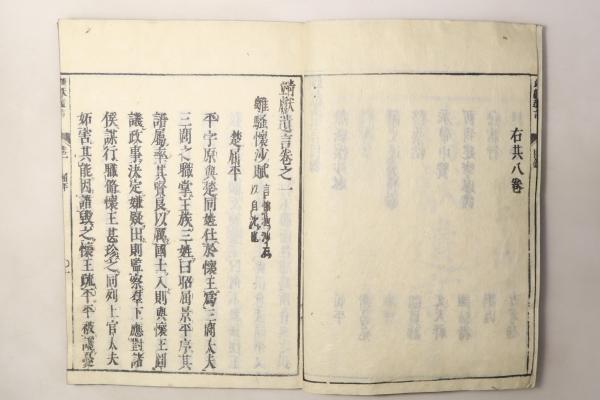 右共八卷
靖献遺言卷之一
離騷懷沙賦
楚屈平
平字原與楚同姓仕於懷王爲三閭大夫
三閭之職掌王族三姓曰昭屈景平序其
譜屬率其賢良以厲國士入則與懷王圖
議政事決定嫌疑出則監察群下應對諸
侯謀行職脩懷王甚珍之同列上官大夫
妬害其能因讒毀之懷王疏平平被讒憂